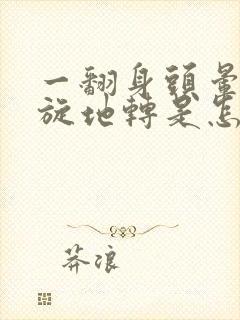 一翻身頭暈
旋地轉是怎
莽浪